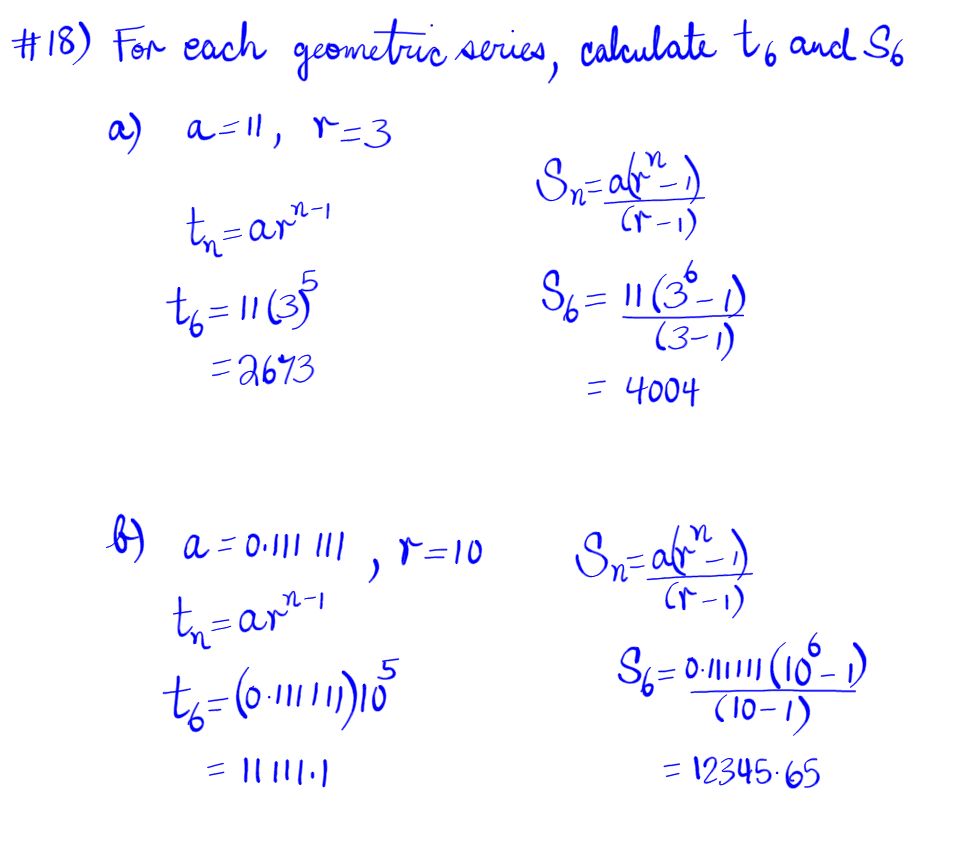 #18) For each geometric series, calculate t₆ and S₆
a) a = 11, r = 3
tₙ = arⁿ⁻¹
t₆ = 11(3)⁵
= 2673
Sₙ = a(rⁿ - 1) / (r - 1)
S₆ = 11(3⁶ - 1) / (3 - 1)
= 4004
b) a = 0.111 111, r = 10
tₙ = arⁿ⁻¹
t₆ = (0.111111)10⁵
= 11 111.1
Sₙ = a(rⁿ - 1) / (r - 1)
S₆ = 0.111111(10⁶ - 1) / (10 - 1)
= 12345.65